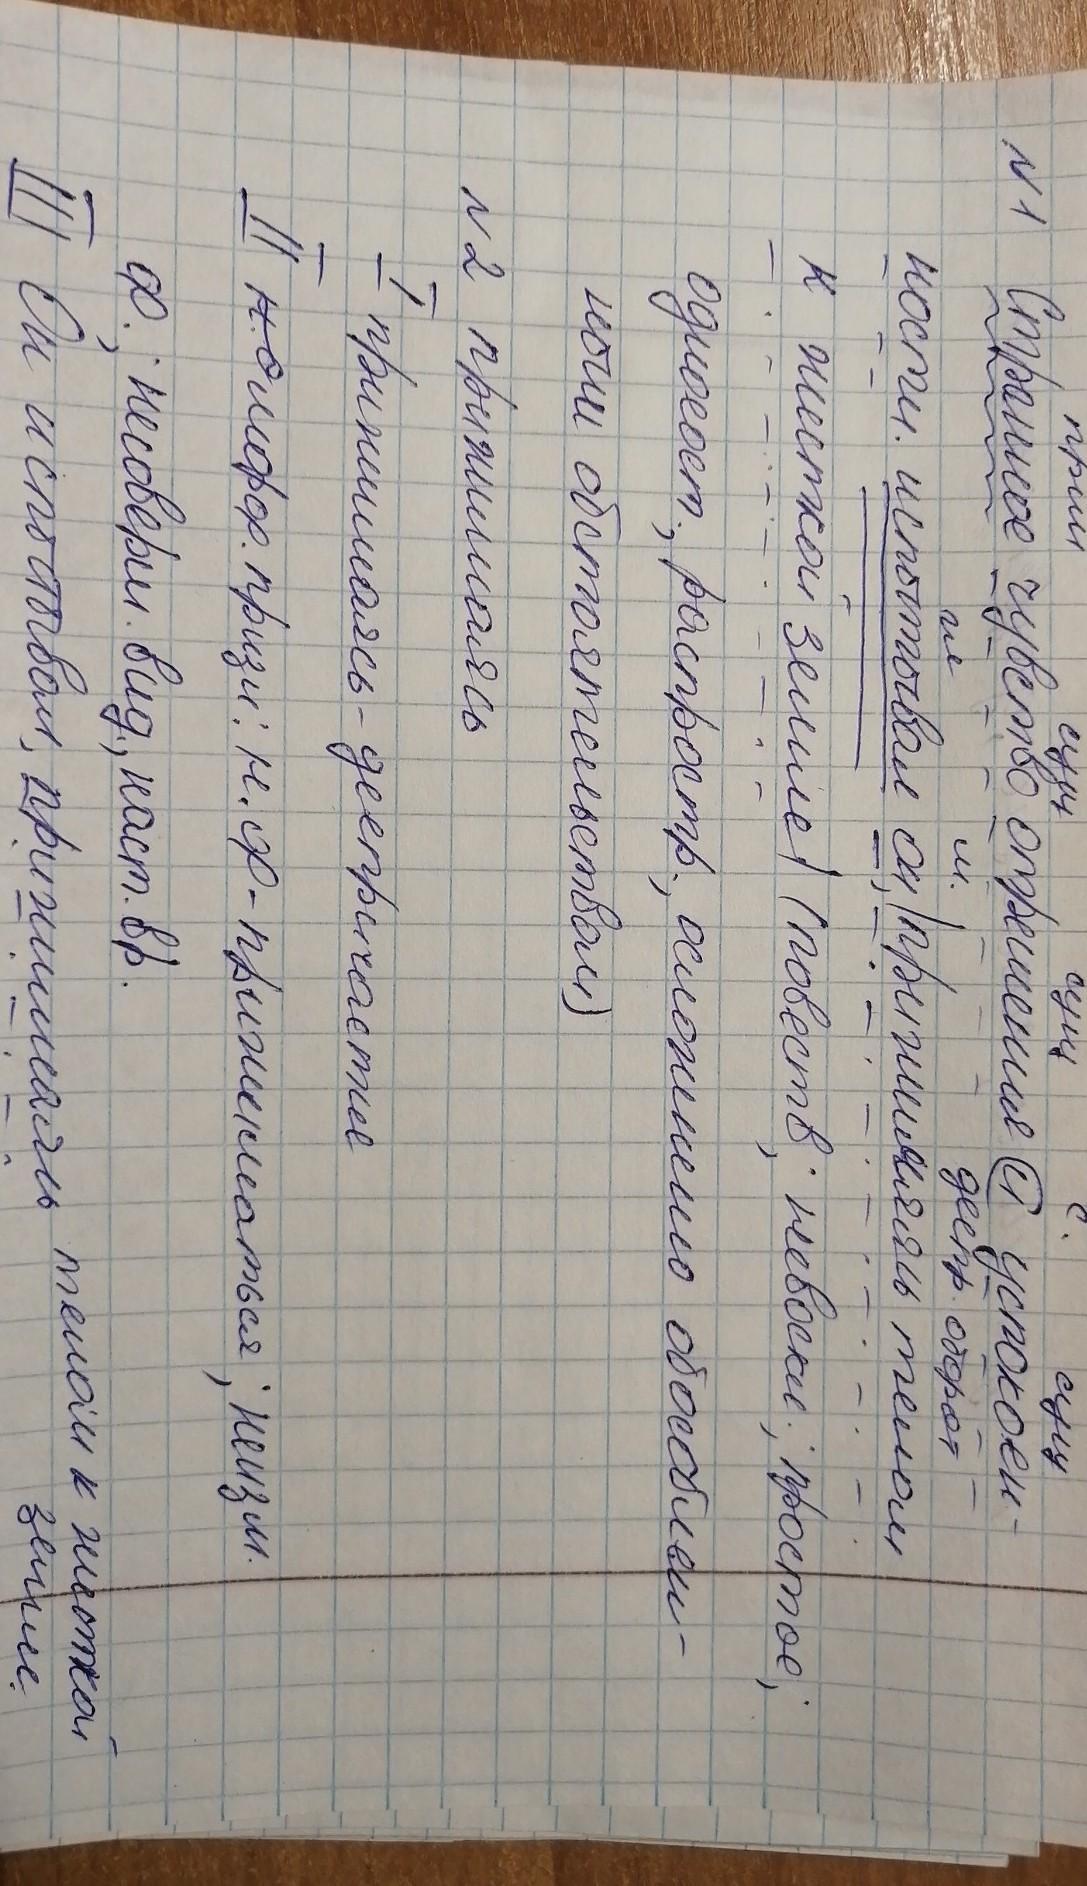 прил сущ сущ с. сущ
N1 Странное чувство отрешения и успокоен-
гл м. деепр. оборот
ности. испытывал он, |прижимаясь телом
к жесткой земле| (повеств; невоскл.; простое;
односост., распростр., осложнено обособлен-
ными обстоятельством)
N2 прижимаясь
I прижимаясь - деепричастие
II н.о морф. призн: н.ф - прижиматься; неизм.
ф.; несоверш. вид, наст. вр.
III Он испытывал, прижимаясь телом к жесткой
земле.